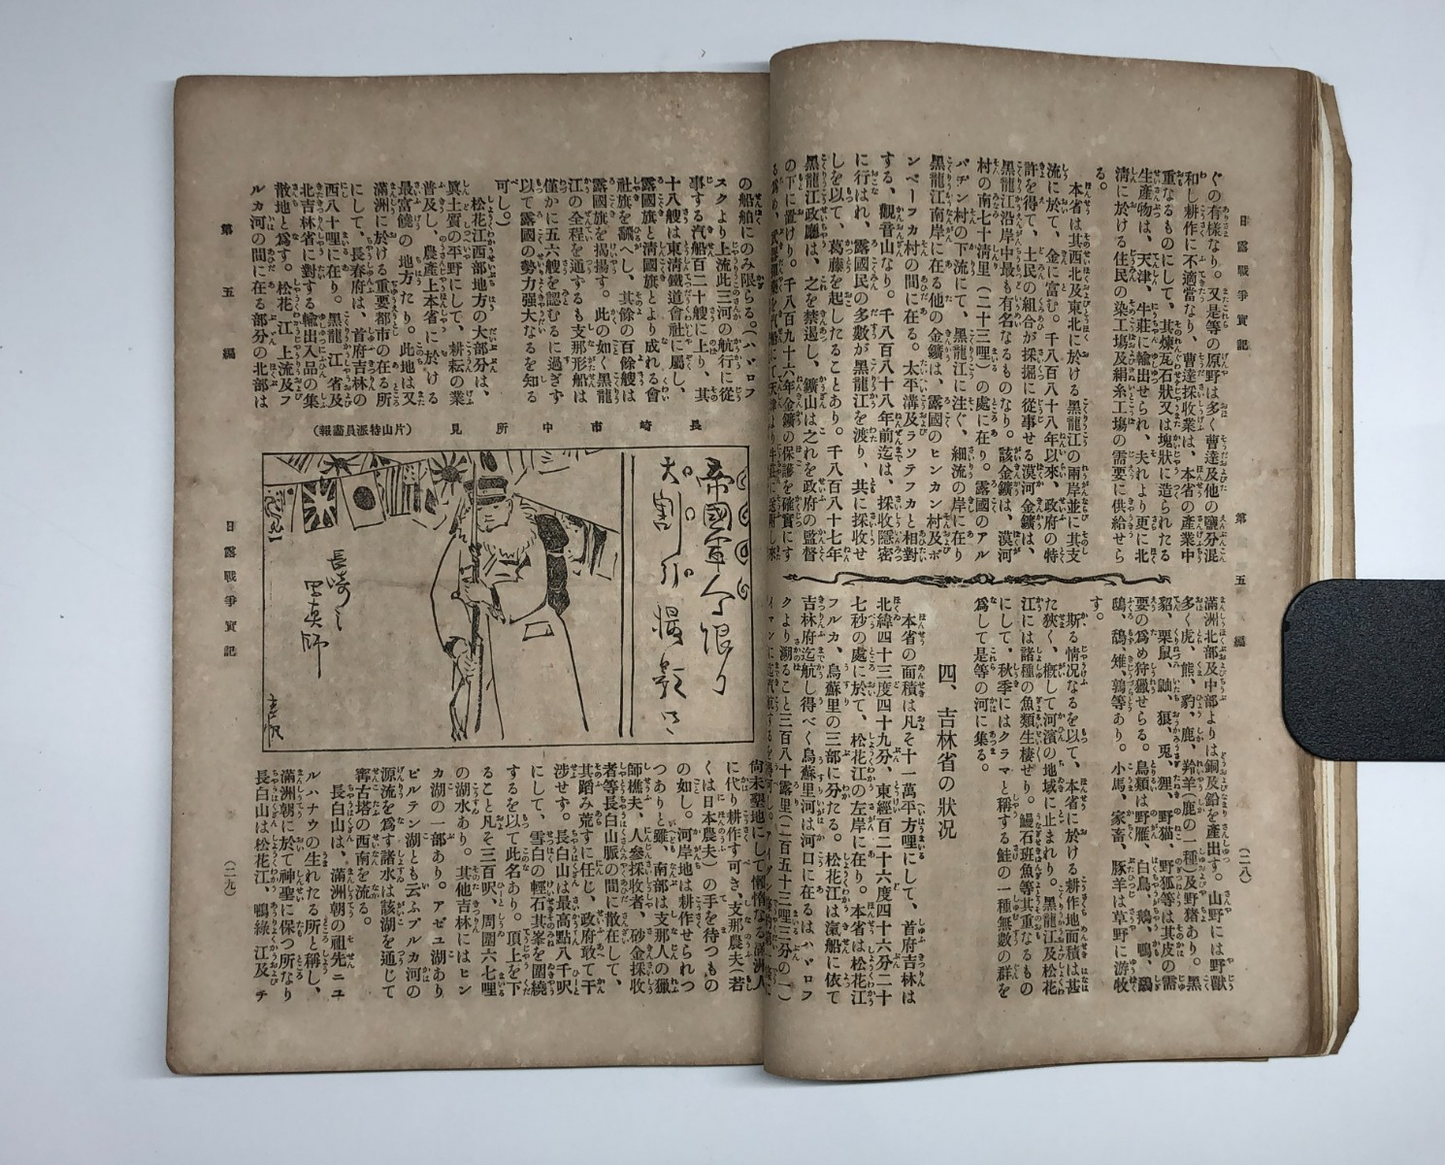 日露戰爭實記
第五編
(二八)
ぐの有樣なり。又是等の原野は多く曹達及他の鹽分混
和し耕作に不適當なり、曹達採收業は、本省の產業中
重なるものにして、其煉瓦石狀又は塊狀に造られたる
生產物は、天津、牛莊に輸出せられ、夫れより更に北
淸に於ける住民の染工塲及絹糸工塲の需要に供給せら
る。
本省は其西北及東北に於ける黑龍江の兩岸並に其支
流に於て、金に富む。千八百八十八年以來、政府の特
許を得て、土民の組合が採掘に從事せる漠河金鑛は、
黑龍江沿岸中最も有名なるものなり。該金鑛は、漠河
村の南七十淸里(二十三哩)の處に在り。露國のアル
バヂン村の下流にて、黑龍江に注ぐ、細流の岸に在り
黑龍江南岸に在る他の金鑛は、露國のヒンカン村及ポ
ンペーフカ村の間に在る。太平溝及ラソテフカと相對
する、觀音山なり。千八百八十八年前迄は、採收隱密
に行はれ、露國民の多數が黑龍江を渡り、共に採收せ
しを以て、葛藤を起したることあり。千八百八十七年
黑龍江政廳は、之を禁遏し、鑛山は之れを政府の監督
の下に置けり。千八百九十六年金鑛の保護を確實にす
滿洲北部及中部よりは銅及鉛を產出す。山野には野獸
多く虎、熊、豹、鹿、羚羊(鹿の一種)及野猪あり。黑
貂、栗鼠、鼬、狼、兎、狸、野猫、野狐等は其皮の需
要の爲め狩獵せらる。鳥類は野雁、白鳥、鵝、鴫、鷸
鴎、鵠、雉、鶉等あり。小馬、家畜、豚羊は草野に游牧
す。
斯る情况なるを以て、本省に於ける耕作地面積は甚
た狹く、槪して河濱の地域に止まれり。黑龍江及松花
江には諸種の魚類生棲せり。鰻石班魚等其重なるもの
にして、秋季にはクラマと稱する鮭の一種無數の群を
爲して是等の河に集る。
四、吉林省の狀况
本省の面積は凡そ十一萬平方哩にして、首府吉林は
北緯四十三度四十九分、東經百二十六度四十六分二十
七秒の處に於て、松花江の左岸に在り。本省は松花江
フルカ、烏蘇里の三部に分たる。松花江は滊船に依て
吉林府迄航し得べく烏蘇里河は河口に在るはハバロフ
クより溯ること三百八十露里(二百五十三哩三分の一)
の船舶にのみ限らる。(ハバロフ
スクより上流此三河の航行に從
事する汽船百二十艘に上り、其
十八艘は東淸鐵道會社に屬し、
露國旗と淸國旗とより成れる會
社旗を飜へし、其餘の百餘艘は
露國旗を揭揚す。此の如く黑龍
江の全程を通ずるも支那形船は
僅かに五六艘を認むるに過ぎず
以て露國の勢力强大なるを知る
可し。)
松花江西部地方の大部分は、
冀土質の平野にして、耕耘の業
普及し、農產上本省に於ける
最富饒の地方たり。此地は又
滿洲に於ける重要都市の在る所
にして、長春府は、首府吉林の
西八十哩に在り。黑龍江省及
北吉林省に對する輸出入品の集
散地と爲す。松花江上流及フ
ルカ河の間に在る部分の北部は
長崎市中所見(片山特派員畵報)
帝國軍人ニ限り
大割引撮影す
長崎之
寫眞師
尙未墾地にして懶惰なる滿洲人
に代り耕作す可き、支那農夫(若
くは日本農夫)の手を待つもの
の如し。河岸地は耕作せられつ
つありと雖、南部は支那人の獵
師樵夫、人參採收者、砂金採收
者等長白山脈の間に散在して、
其踏み荒すに任じ、政府敢て干
涉せず。長白山は最高點八千呎
にして、雪白の輕石其峯を圍繞
するを以て此名あり。頂上を下
ること凡そ三百呎、周圍六七哩
の湖水あり。其他吉林にはヒン
カ湖の一部あり。アゼユ湖あり
ピルテン湖とも云ふブルカ河の
源流を爲す諸水は該湖を通じて
寗古塔の西南を流る。
長白山は、滿洲朝の祖先ニユ
ルハナウの生れたる所と稱し、
滿洲朝に於て神聖に保つ所なり
長白山は松花江、鴨綠江及チ
第五編
日露戰爭實記
(二九)